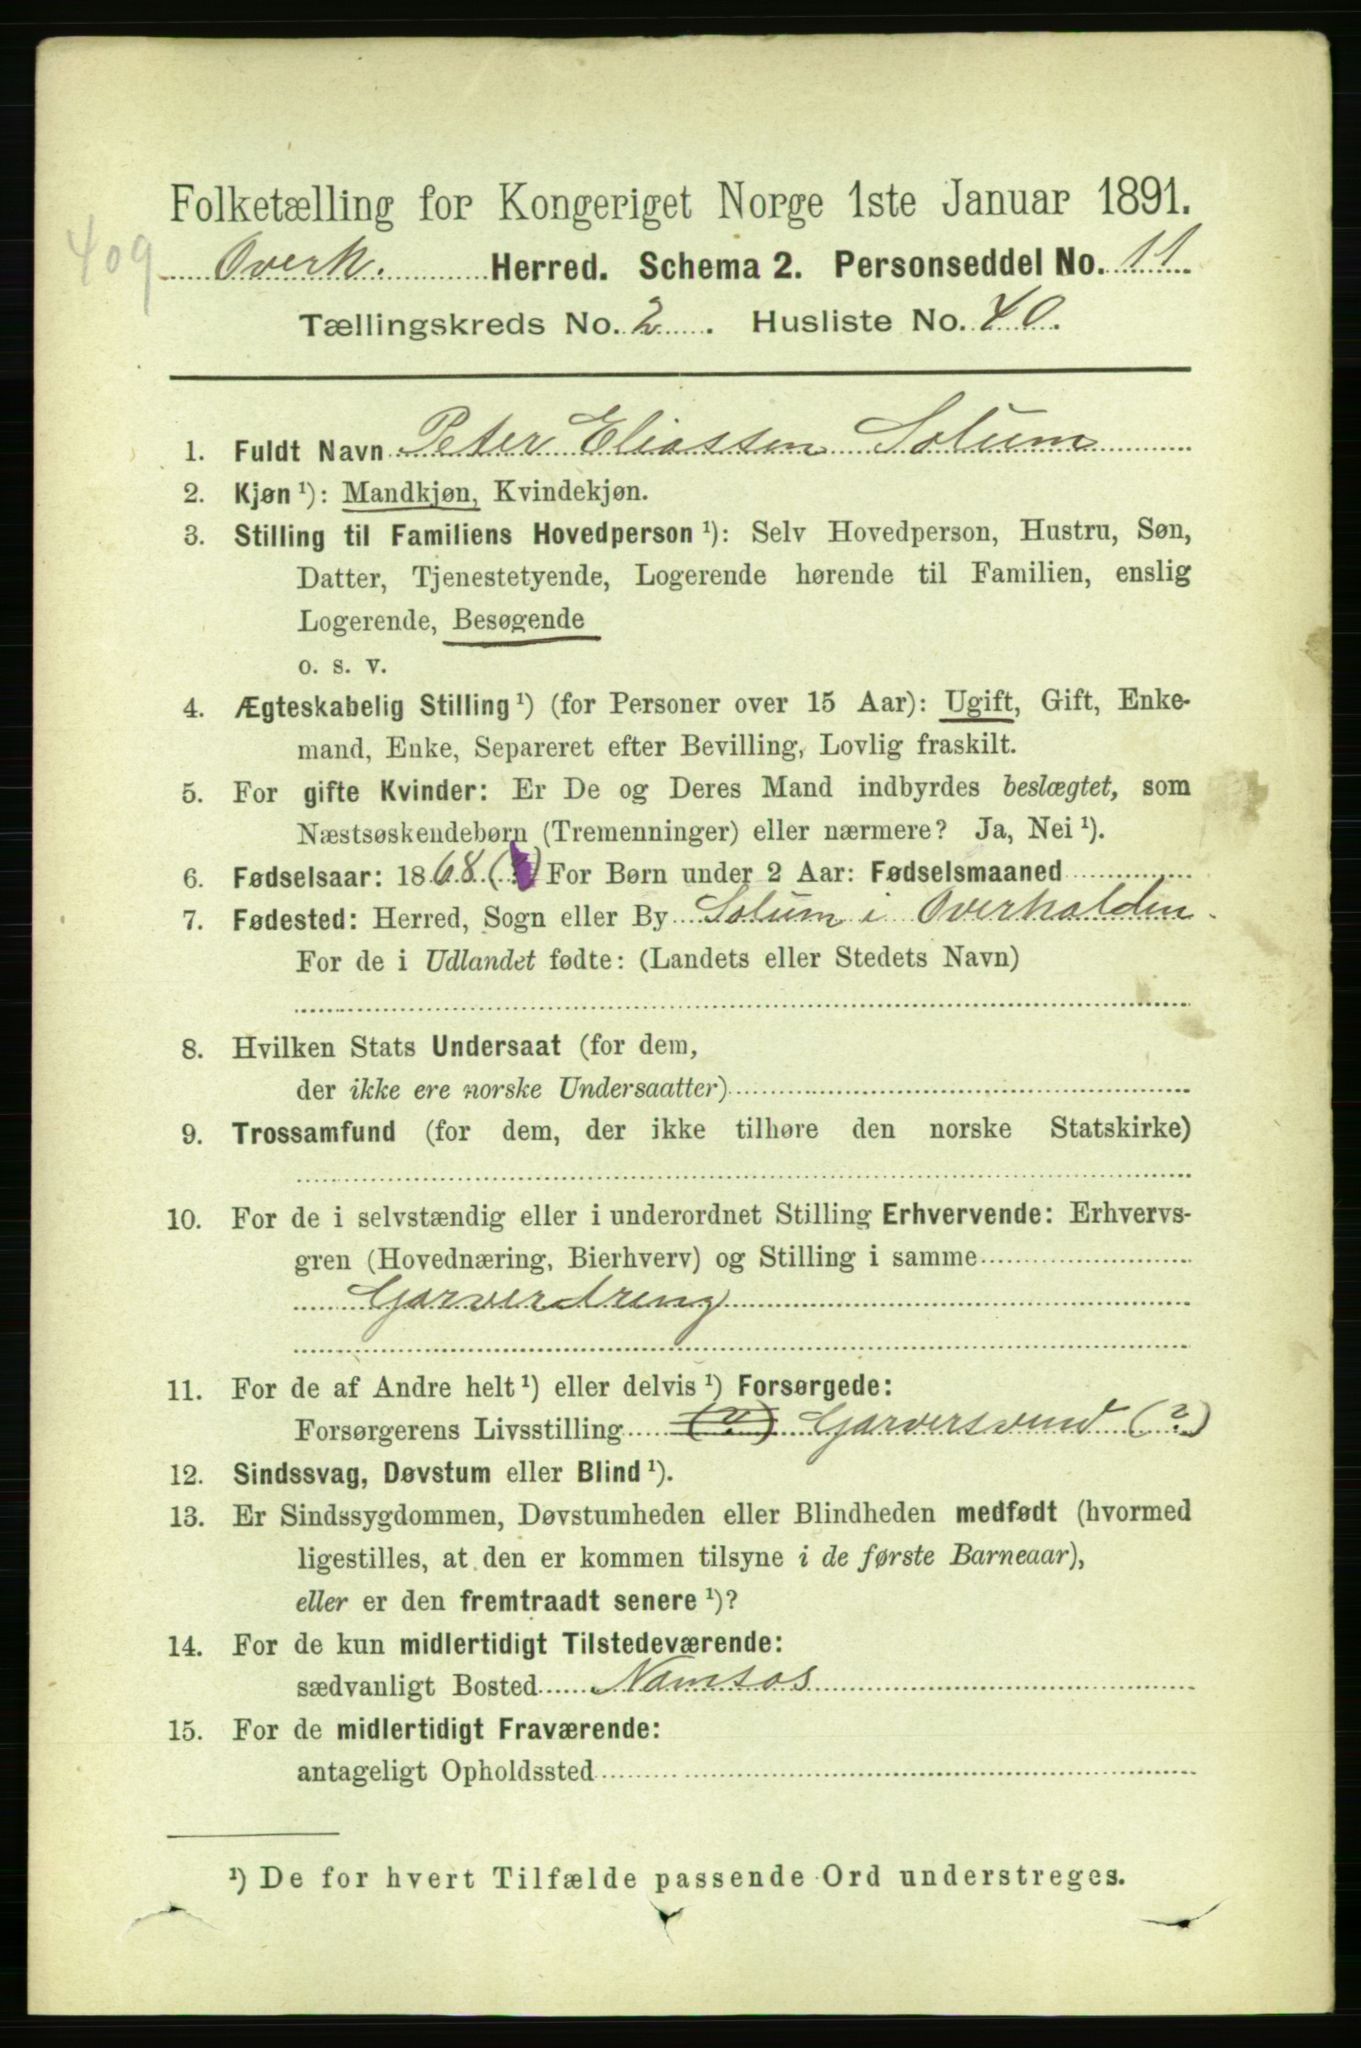 Folketælling for Kongeriget Norge 1ste Januar 1891.
409
Overh. Herred. Schema 2. Personseddel No. 11
Tællingskreds No. 2. Husliste No. 40.
1. Fuldt Navn Peter Eliassen Solum
2. Kjøn ¹): Mandkjøn, Kvindekjøn.
3. Stilling til Familiens Hovedperson ¹): Selv Hovedperson, Hustru, Søn,
Datter, Tjenestetyende, Logerende hørende til Familien, enslig
Logerende, Besøgende
o. s. v.
4. Ægteskabelig Stilling ¹) (for Personer over 15 Aar): Ugift, Gift, Enke-
mand, Enke, Separeret efter Bevilling, Lovlig fraskilt.
5. For gifte Kvinder: Er De og Deres Mand indbyrdes beslægtet, som
Næstsøskendebørn (Tremenninger) eller nærmere? Ja, Nei ¹).
6. Fødselsaar: 1868 ( ) For Børn under 2 Aar: Fødselsmaaned
7. Fødested: Herred, Sogn eller By Solum i Overhalden.
For de i Udlandet fødte: (Landets eller Stedets Navn)
8. Hvilken Stats Undersaat (for dem,
der ikke ere norske Undersaatter)
9. Trossamfund (for dem, der ikke tilhøre den norske Statskirke)
10. For de i selvstændig eller i underordnet Stilling Erhvervende: Erhvervs-
gren (Hovednæring, Bierhverv) og Stilling i samme
Garverdreng
11. For de af Andre helt ¹) eller delvis ¹) Forsørgede:
Forsørgerens Livsstilling (?) Garversvend (?)
12. Sindssvag, Døvstum eller Blind ¹).
13. Er Sindssygdommen, Døvstumheden eller Blindheden medfødt (hvormed
ligestilles, at den er kommen tilsyne i de første Barneaar),
eller er den fremtraadt senere ¹)?
14. For de kun midlertidigt Tilstedeværende:
sædvanligt Bosted Namsos
15. For de midlertidigt Fraværende:
antageligt Opholdssted
¹) De for hvert Tilfælde passende Ord understreges.